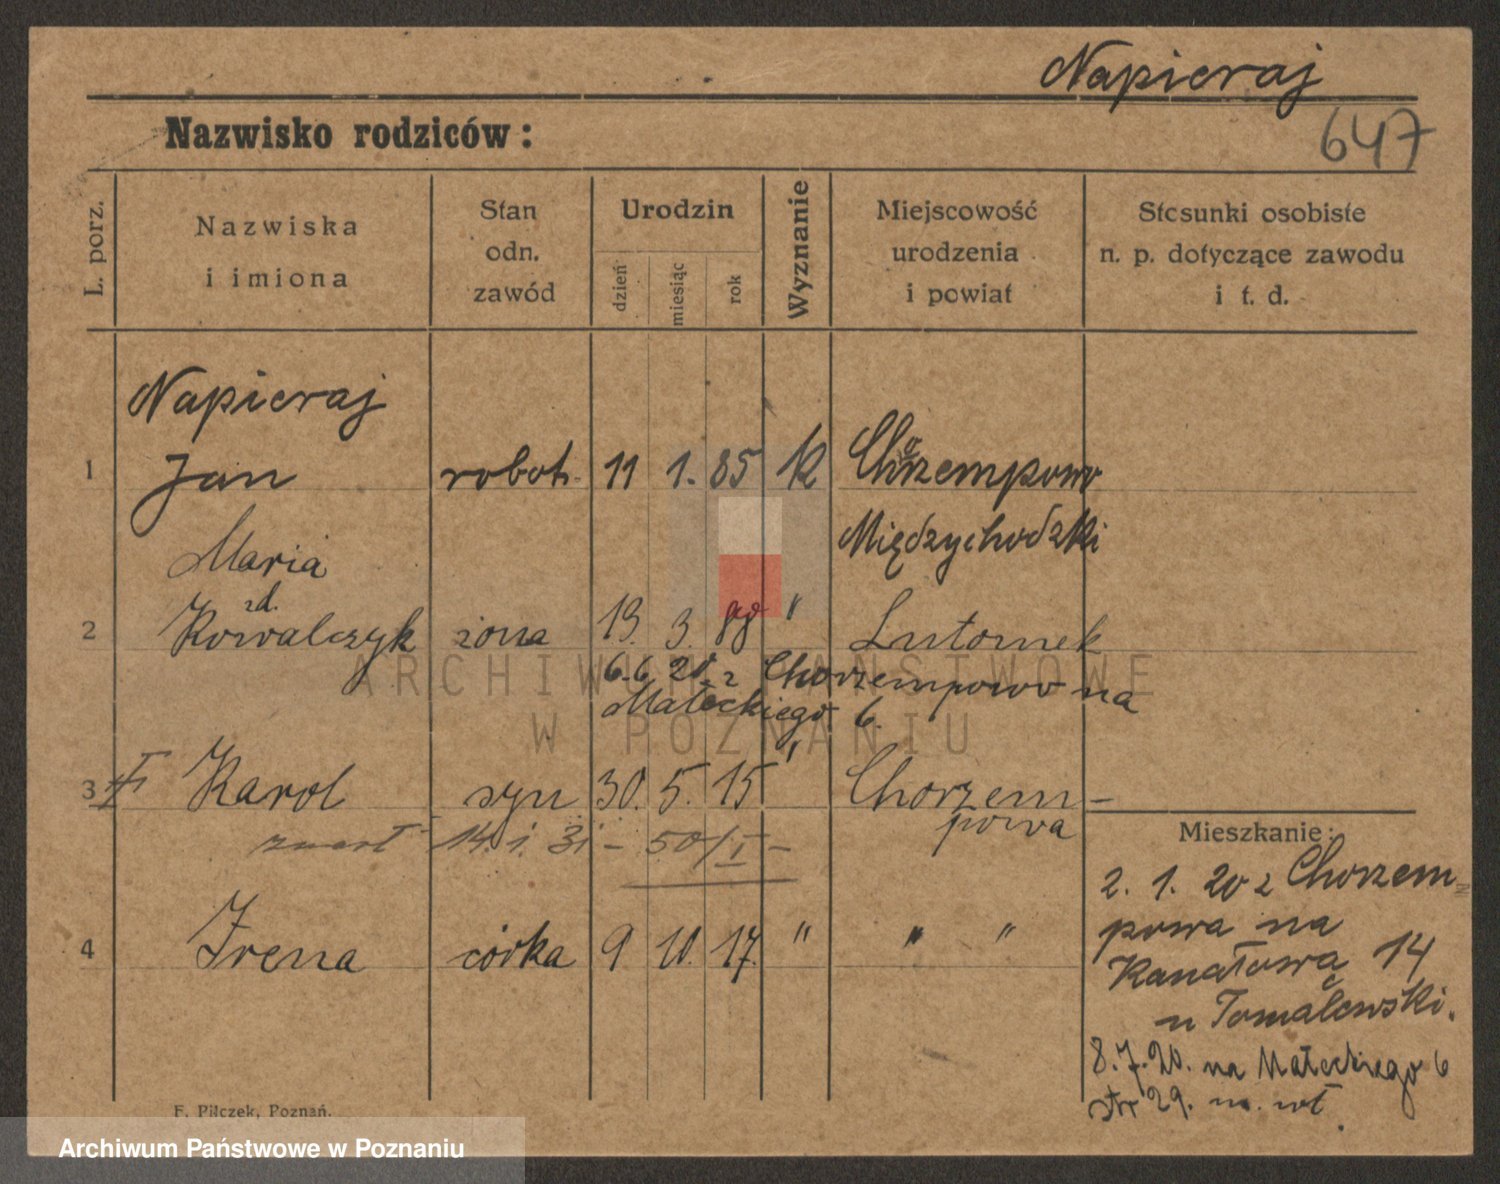 Napieraj
647
Nazwisko rodziców:
L. porz.
Nazwiska
i imiona
Stan
odn.
zawód
Urodzin
dzień
miesiąc
rok
Wyznanie
Miejscowość
urodzenia
i powiat
Stosunki osobiste
n. p. dotyczące zawodu
i t. d.
Napieraj
1 Jan robotn. 11 1. 85 K Chorzempowo
Międzychodzki
Maria
zd.
2 Kowalczyk żona 19. 3. 88 " Lutomek
6.6.20. z Chorzempowo na
Małeckiego 6.
3 Karol syn 30. 5. 15 " Chorzem-
powa
zmarł 14. 1. 31 - 50/I -
4 Irena córka 9 10. 17. " " "
Mieszkanie:
2. 1. 20 z Chorzem-
powa na
Kanałową 14
u Tomalewski.
8.7.20. na Małeckiego 6
29.
F. Pilczek, Poznań.
ARCHIWUM PAŃSTWOWE
W POZNANIU
Archiwum Państwowe w Poznaniu